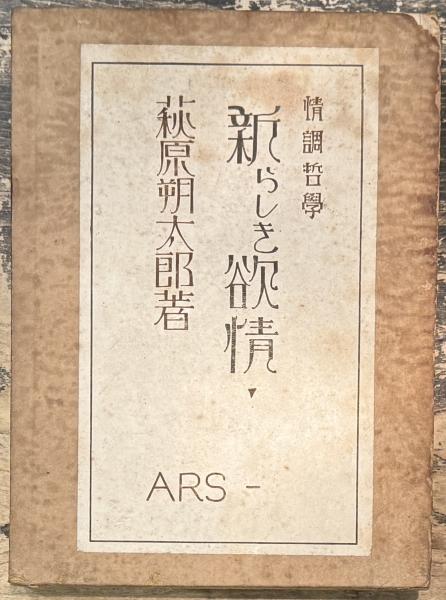 情調哲學
新らしき欲情
萩原朔太郎著
ARS -